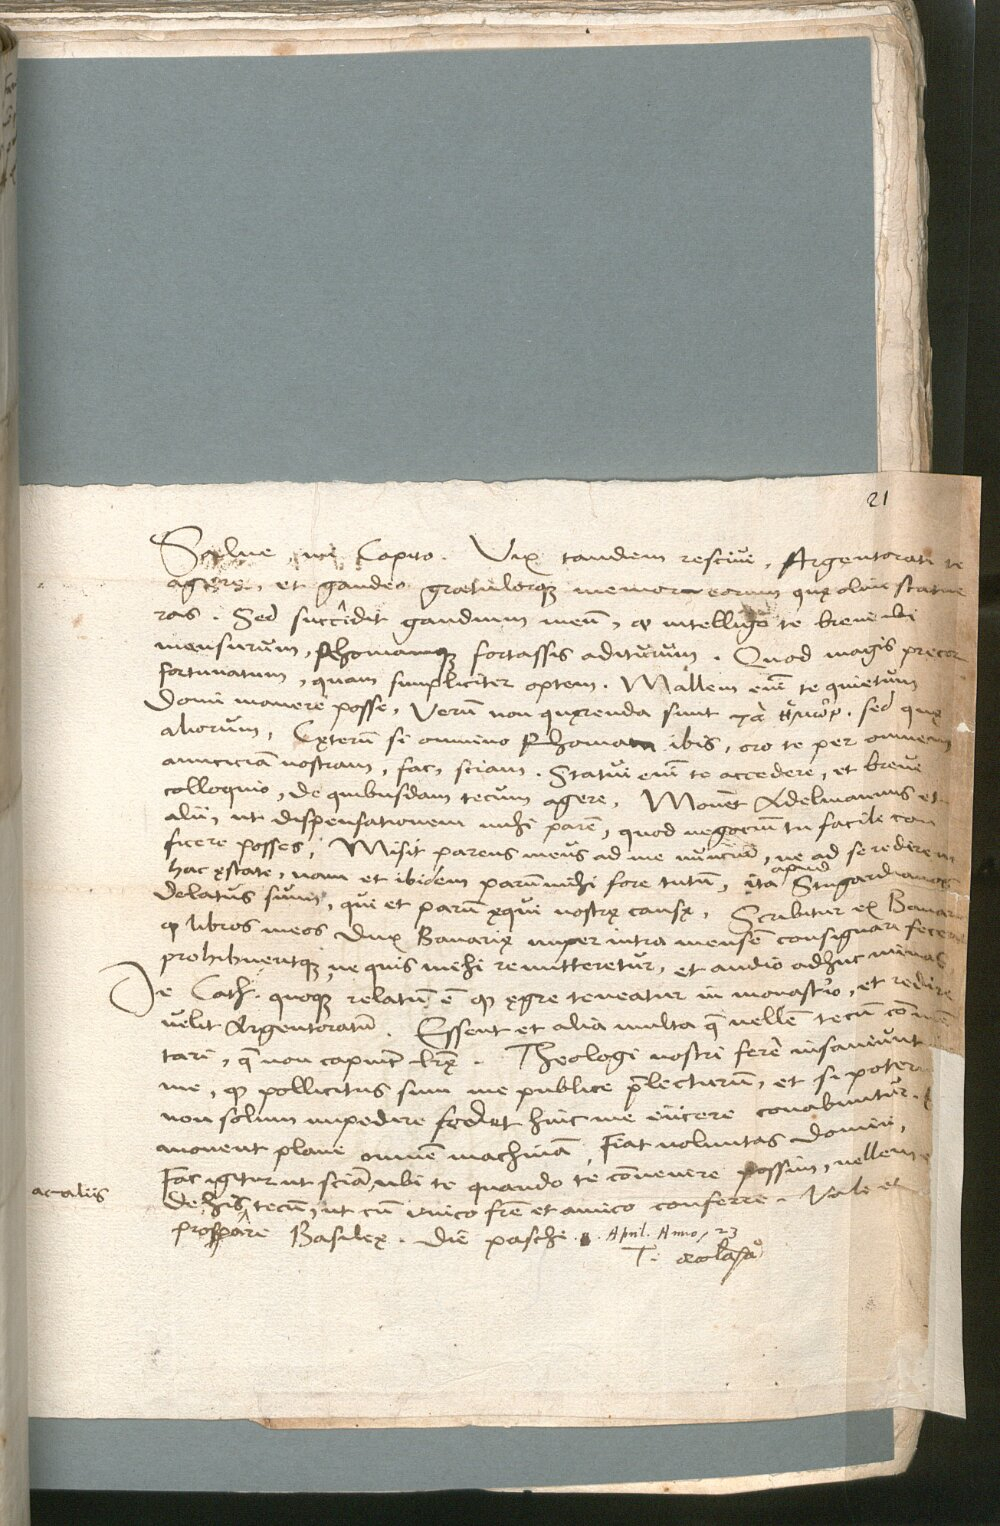 21
Salue, mi Capito. Vix tandem resciui, Argentorati te
agere, et gaudeo gratulorq₃ memor eorum quę olim statue
ras. Sed succidit gaudium meũ, ꝙ intelligo te breue ibi
mensurum, Rhomamq₃ fortassis aditurum. Quod magis precor
fortunatum, quam simpliciter optem. Mallem eñi te quietum
domi manere posse, Verũ non quęrenda sunt τὰ ἡμῶν. sed quę
aliorum, Cęterũ si omnino Rhomam ibis, oro te per omnem
amiciciã nostram, fac, sciam. Statui eñi te accedere, et breue
colloquio, de quibusdam tecum agere, Monet Adelmannus et
alii, ut dispensationem mihi parẽ, quod negociũ tu facile con
ficere posses, Misit parens meus ad me nunciũ, ne ad se redirem
hac ęstate, nam et ibidem parũ mihi fore tutũ, ita apud Stugardianos
delatus sum, qui et parũ ęqui nostrę causę, Scribitur ex Bauari
ꝙ libros meos dux Bauarię nuper intra mensẽ consignari fecerit
prohibueritq₃ ne quis mihi remitteretur, et audio adhuc minas
De Cath. quoq₃ relatũ ẽ ꝙ ęgre teneatur in monastrio, et redire
uelit Argentoratũ. Essent et alia multa q̃ uellẽ tecũ cõmẽ
tari, q̃ non capiũt lrę. Theologi nostri ferè insaniunt
me, ꝙ pollicitus sum me publice p̃lecturũ, et si poter
non solum impedire sed et hinc me eiicere conabuntur.
mouent plane omnẽ machinã, Fiat uoluntas domini,
Fac igitur ut sciã, ubi te quando te cõuenere possim, uellem
ac aliis
de his tecũ, ut cũ unico frẽ et amico conferre. Vale et
prosperare Basileę. Die pasche. April. Anno, 23
T. œcolãpa